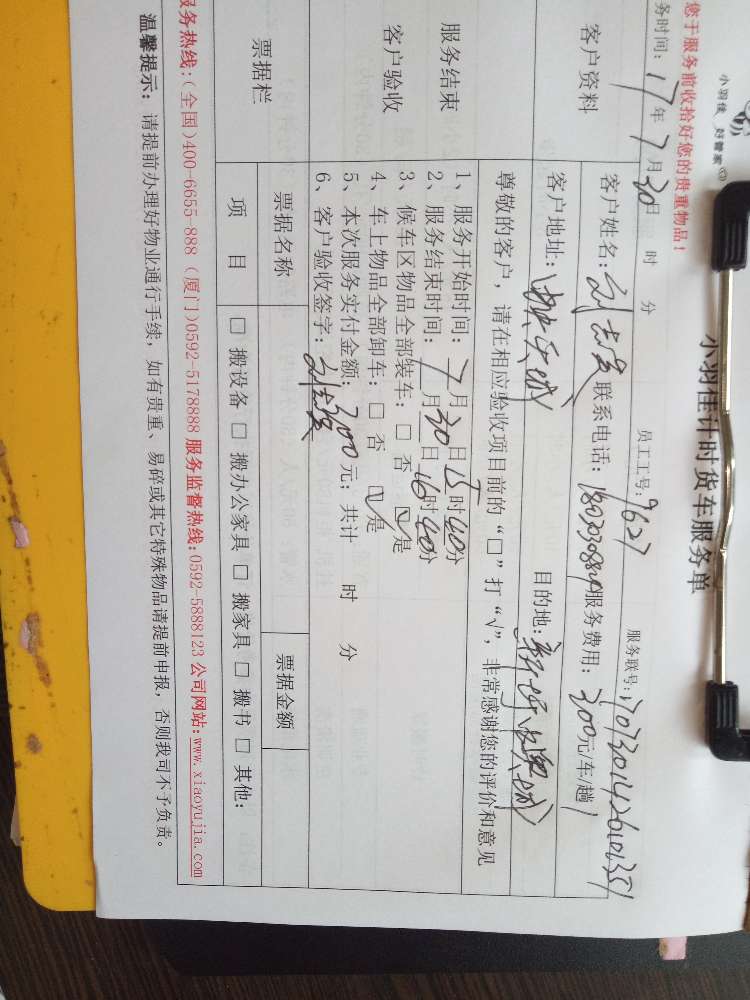 小羽佳 好管家
小羽佳计时货车服务单
您于服务前收拾好您的贵重物品！
员工工号：9627 服务联号：
务时间：17年7月30日 时 分
客户资料
客户姓名： 联系电话： 服务费用：300元/车/趟
客户地址： 目的地：
尊敬的客户，请在相应验收项目前的“□”打“√”，非常感谢您的评价和意见
服务结束
客户验收
1、服务开始时间：7月30日15时40分
2、服务结束时间：7月30日16时40分
3、候车区物品全部装车：□ 否 ☑是
4、车上物品全部卸车：□ 否 ☑是
5、本次服务实付金额：300元；共计 时 分
6、客户验收签字：
票据栏
票据名称 票据金额
项 目 □ 搬设备 □ 搬办公家具 □ 搬家具 □ 搬书 □ 其他：
服务热线：(全国)400-6655-888 (厦门)0592-5178888 服务监督热线：0592-5888123 公司网站：www.xiaoyujia.com
温馨提示：请提前办理好物业通行手续，如有贵重、易碎或其它特殊物品请提前申报，否则我司不予负责。